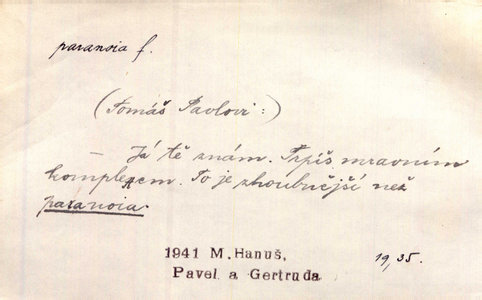 paranoia f.
(Tomáš Pavlovi:)
– Já tě znám. Trpíš mravním
komplexem. To je zhoubnější než
paranoia.
1941 M. Hanuš,
Pavel a Gertruda
19, 35.